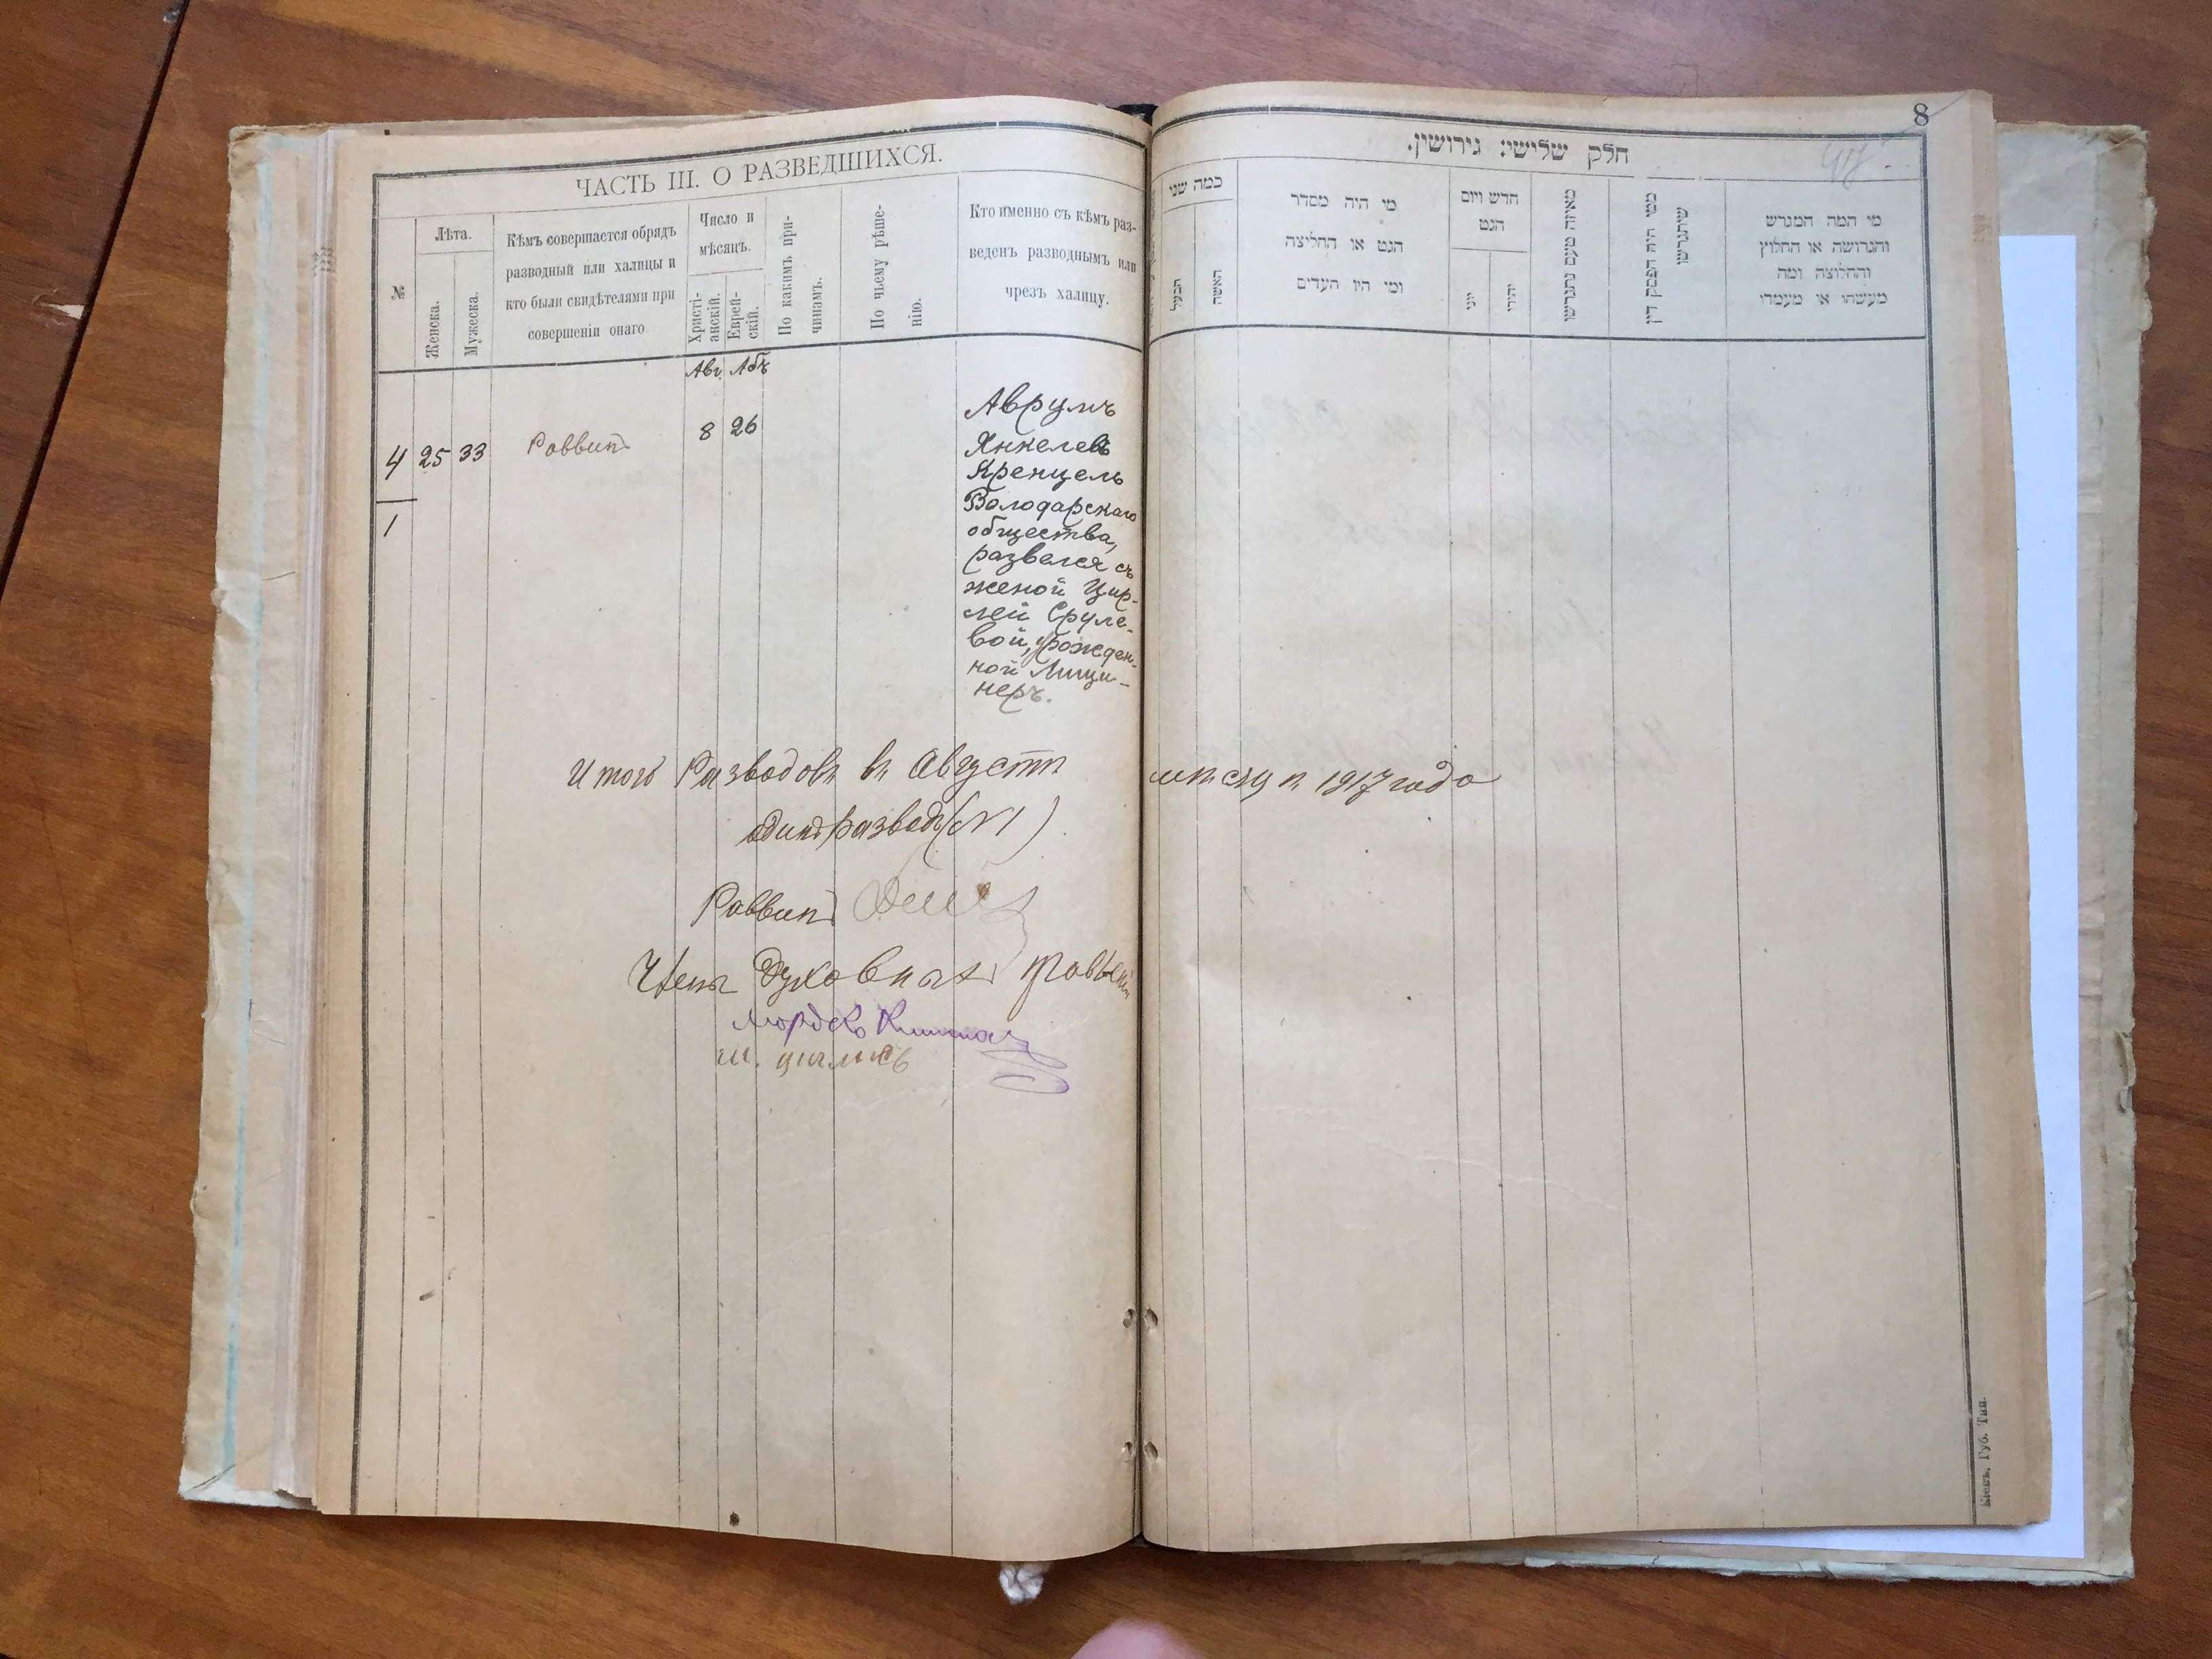 ЧАСТЬ III. О РАЗВЕДШИХСЯ.
№
Лѣта.
Женска.
Мужеска.
Кѣмъ совершается обрядъ
разводный или халицы и
кто были свидѣтелями при
совершеніи онаго
Число и
мѣсяцъ.
Христі-
анскій.
Еврей-
скій.
По какимъ при-
чинамъ.
По чьему рѣше-
нію.
Кто именно съ кѣмъ раз-
веденъ разводнымъ или
чрезъ халицу.
Авг. Абъ
4 25 33 Раввинъ 8 26
1
Аврумъ
Янкелевъ
Кренцель
Володарскаго
общества,
развелся съ
женой Цир-
лей Сруле-
вой, урожден-
ной Лищи-
неръ.
Итого Разводовъ въ Августѣ мѣсяцѣ 1917 года
одинъ разводъ (№ 1)
Раввинъ
Члены Духовныхъ правленій
Мордко
8
חלק שלישי: גירושין.
כמה שני
הבעל
האשה
מי היה מסדר
הגט או החליצה
ומי היו העדים
חדש ויום
הגט
יוני
יהודי
מאיזה טעם נתגרשו
ממי היה הפסק דין
שיתגרשו
מי המה המגרש
והגרושה או החלוץ
והחלוצה ומה
מעשהו או מעמדו
Кіевъ, Губ. Тип.